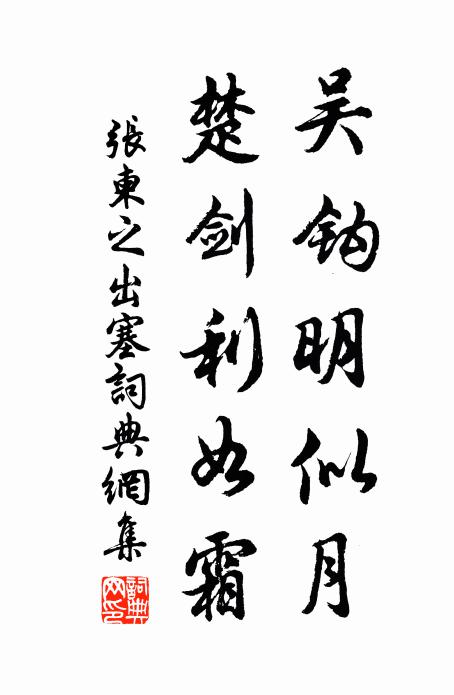 吴鈎明似月
楚剑利如霜
張東之出塞詞典網集
詞典
网印